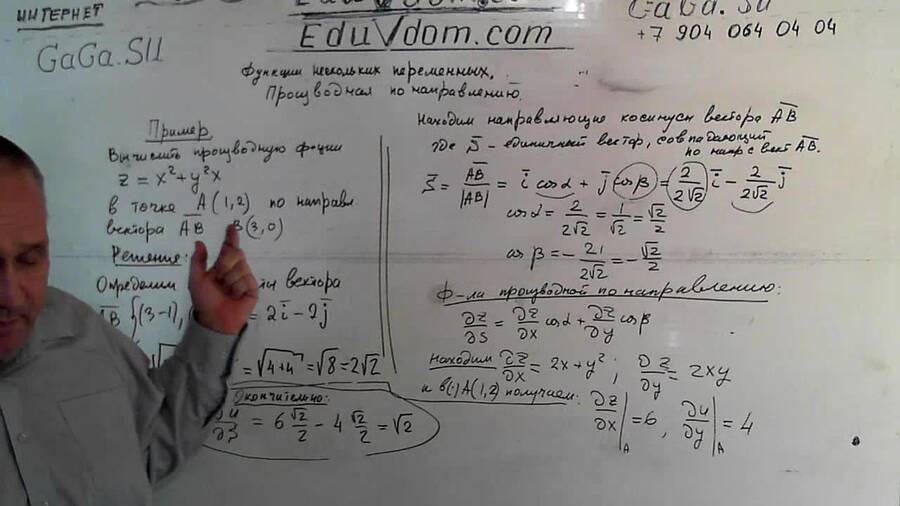 ИНТЕРНЕТ
GaGa.SU
EduVdom.com
GaGa.SU
+7 904 064 04 04
Функции нескольких переменных.
Производная по направлению.
Пример
Вычислить производную фции
z = x² + y²x
в точке A(1,2) по направл
вектора AB̅ B(3,0)
Решение:
Определим ти вектора
AB̅ {(3-1), ( = 2i̅ - 2j̅
= √4+4 = √8 = 2√2
Окончительно:
∂u/∂S = 6 √2/2 - 4 √2/2 = √2
Находим направляющую косинусы вектора AB̅
где S̅ - единичный вектор, совпадающий
по напр с вект AB̅.
S̅ = AB̅/|AB̅| = i̅ cos α + j̅ cos β = 2/2√2 i̅ - 2/2√2 j̅
cos α = 2/2√2 = 1/√2 = √2/2
cos β = - 21/2√2 = - √2/2
Ф-ла производной по направлению:
∂z/∂s = ∂z/∂x cos α + ∂z/∂y cos β
Находим ∂z/∂x = 2x + y² ; ∂z/∂y = 2xy
и в(·) A(1,2) получаем: ∂z/∂x|A = 6, ∂u/∂y|A = 4